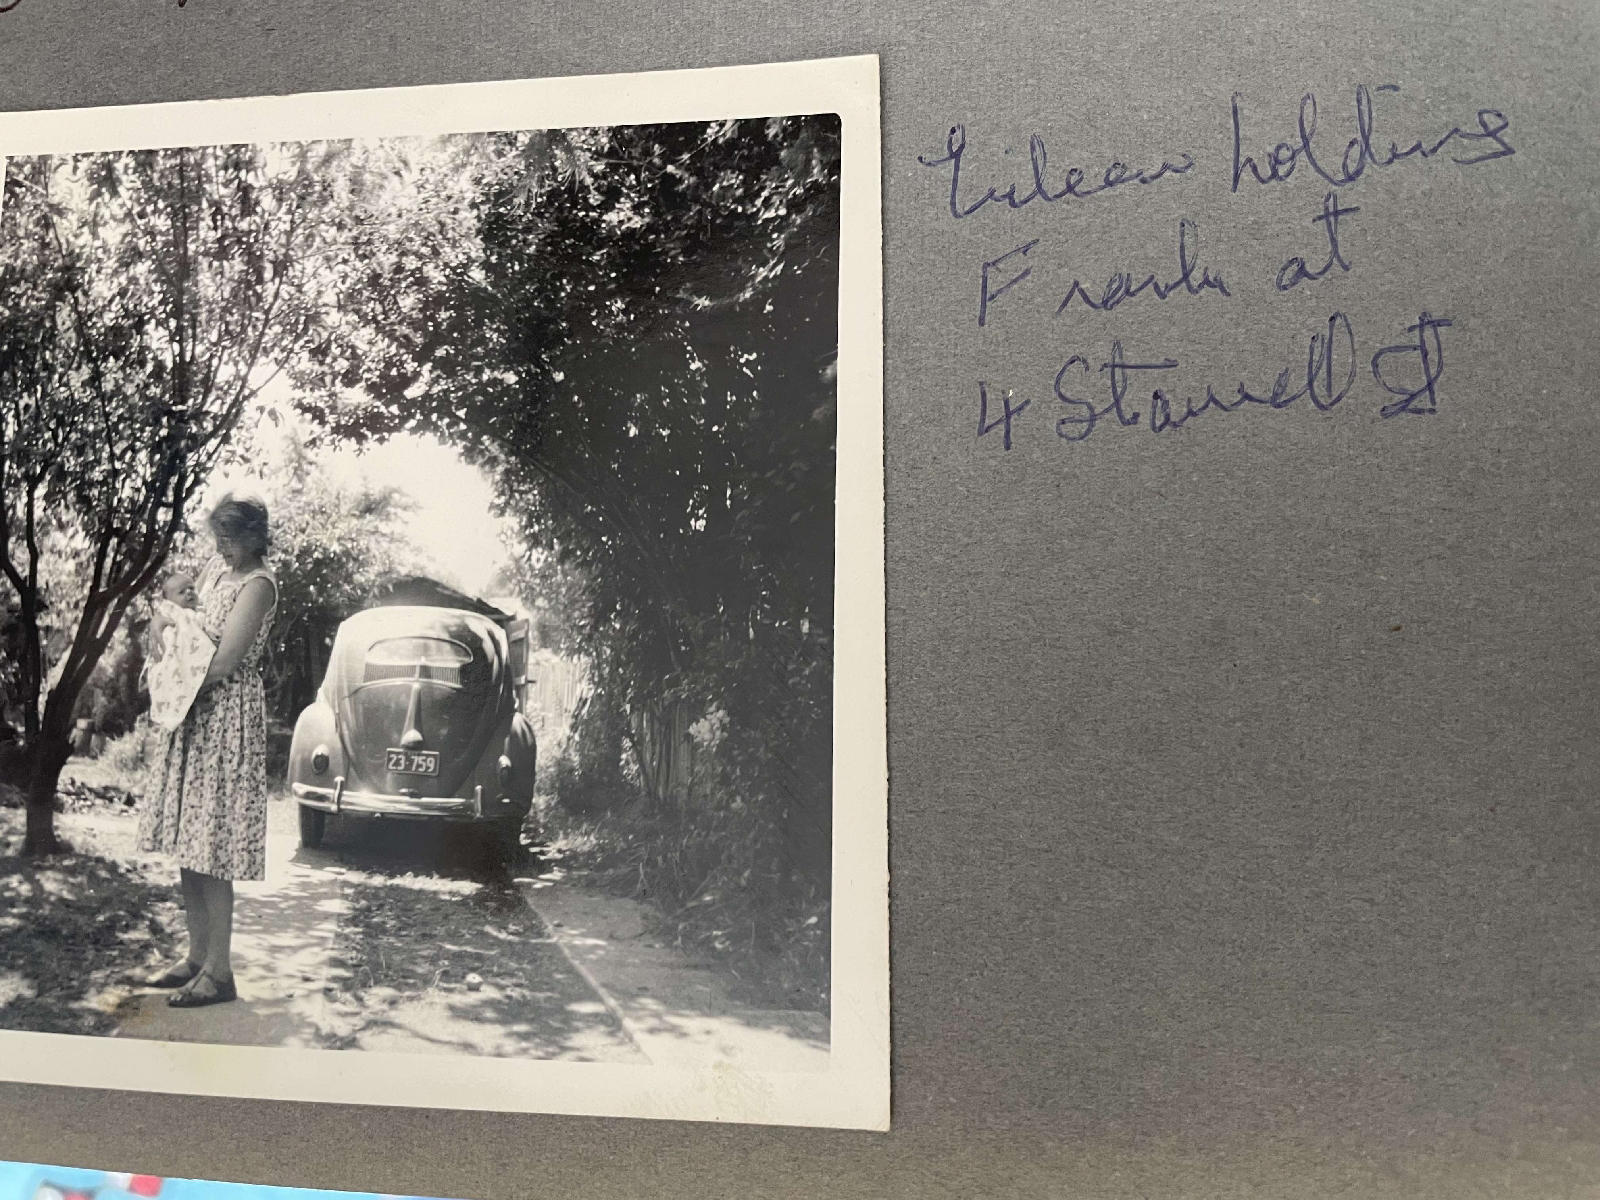 Eileen holding
Frank at
4 Stawell St
23·759